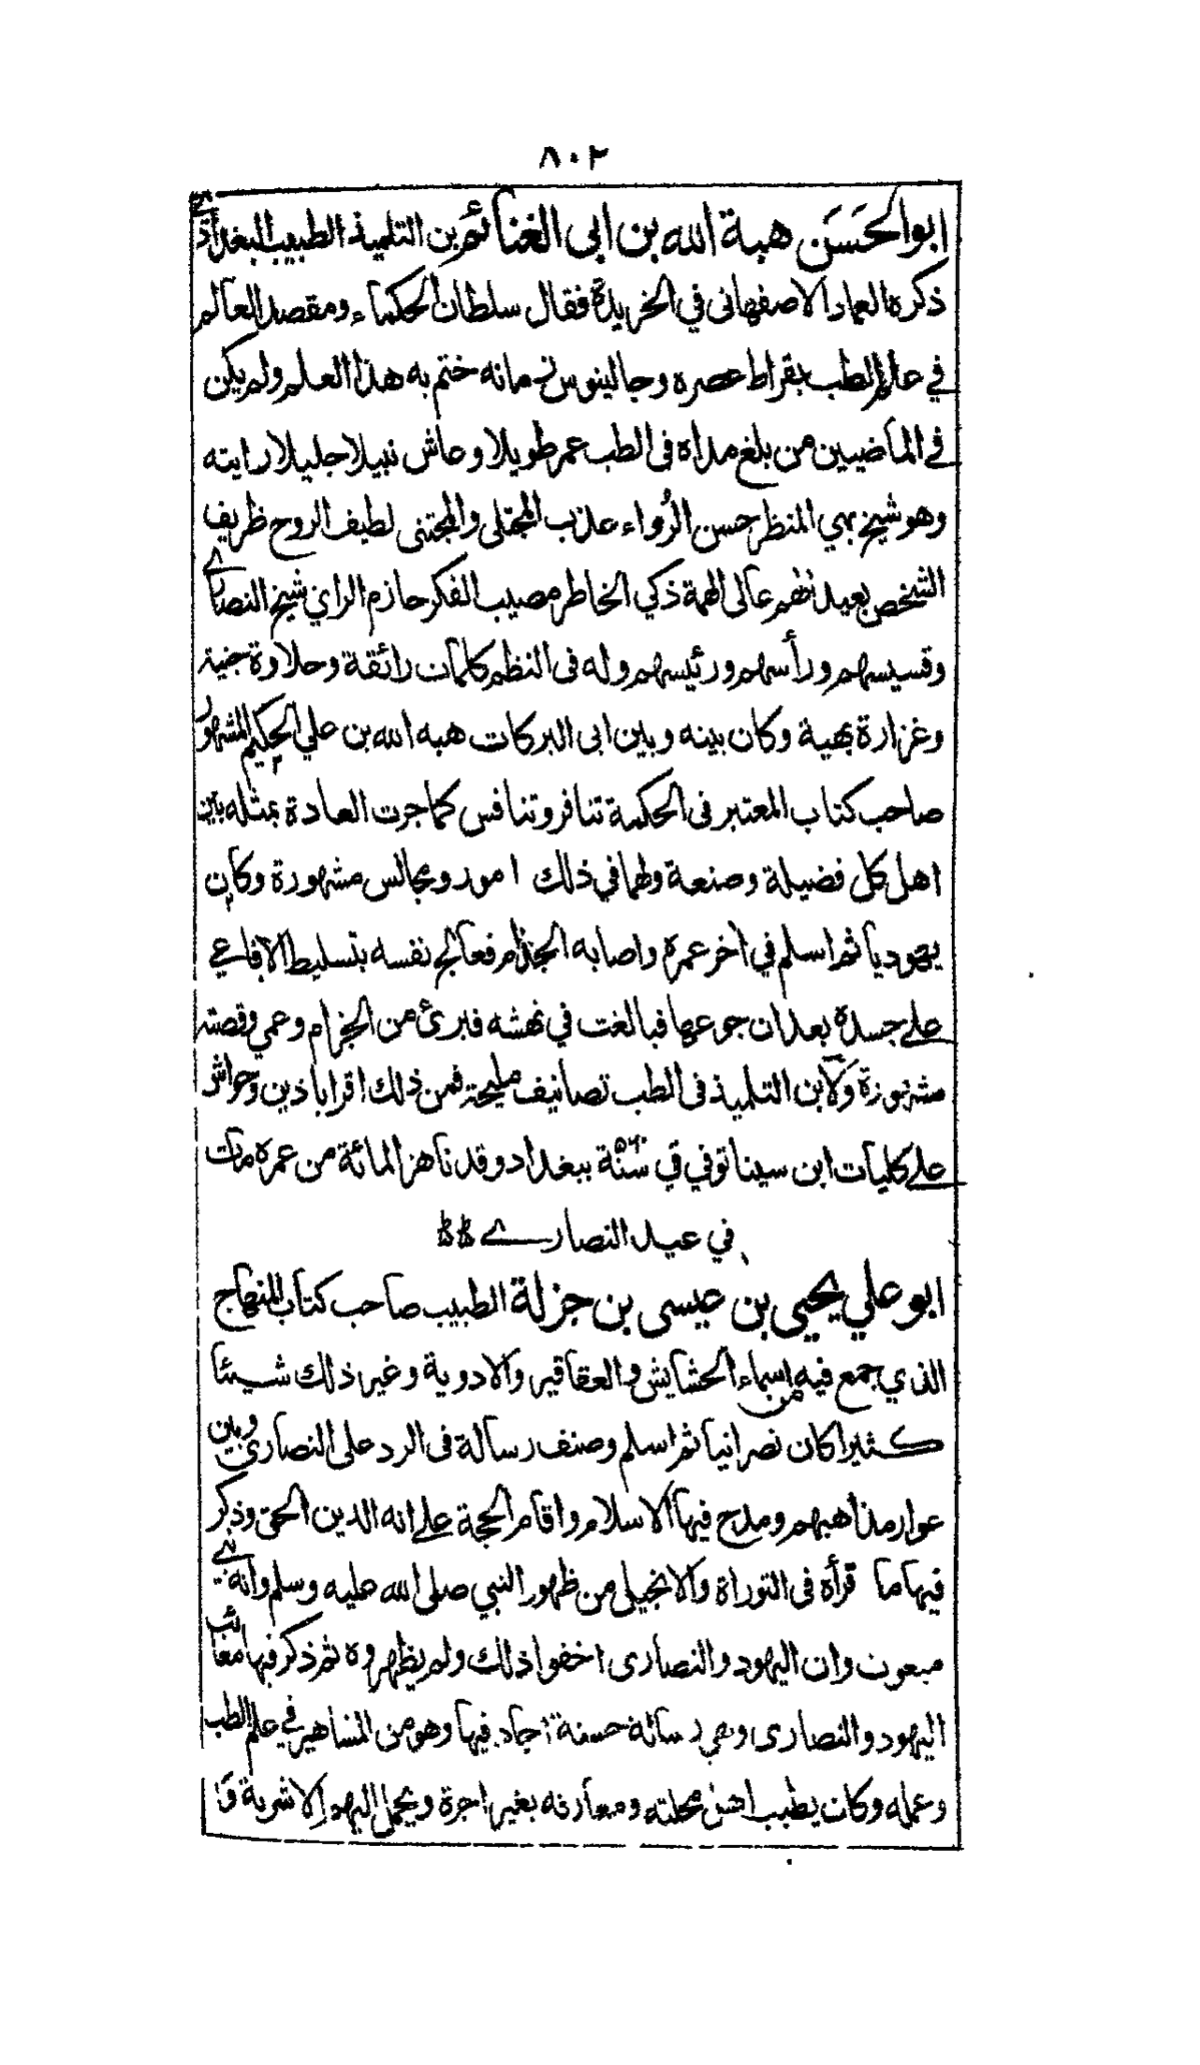 ٨٠٢
ابوالحَسَن هبة الله بن ابى الغنائم بن التلميذ الطبيب البغدادے
ذكره العماد الاصفهانى في الخريدة فقال سلطان الحكماء ومقصد العالم
في عالم الطب بقراط عصره وجالينوس زمانه ختم به هذا العلم ولم يكن
في الماضيين من بلغ مداه فى الطب عمر طويلا وعاش نبيلا جليلا رايته
وهو شيخ بهي المنظر حسن الرُواء عذب المجتلى والمجتنى لطيف الروح ظريف
الشخص بعيد الهم عالى الهمة ذكي الخاطر مصيب الفكر حازم الراي شيخ النصارے
وقسيسهم ورأسهم ورئيسهم وله فى النظم كلمات رائقة وحلاوة جنية
وغزارة بهية وكان بينه وبين ابى البركات هبه الله بن علي الحكيم المشهور
صاحب كتاب المعتبر فى الحكمة تنافر وتنافس كما جرت العادة بمثله بين
اهل كل فضيلة وصنعة ولهما في ذلك امور ومجالس مشهورة وكان
يهوديا ثم اسلم في اخر عمره واصابه الجذام فعالج نفسه بتسليط الافاعي
علے جسده بعد ان جوعها فبالغت في نهشه فبرئ من الجذام وعمي وقصته
مشهورة ولابن التلميذ فى الطب تصانيف مليحة فمن ذلك اقراباذين وحواش
علے كليات ابن سينا توفي في سنة ٥٦٠ ببغداد وقد ناهز المائة من عمره مات
في عيد النصارے
ابو علي يحيى بن عيسى بن جزلة الطبيب صاحب كتاب المنهاج
الذي جمع فيه من اسماء الحشايش والعقاقير والادوية وغير ذلك شيئا
كثيرا كان نصرانيا ثم اسلم وصنف رسالة فى الرد على النصارى وبين
عوار مذاهبهم ومدح فيها الاسلام واقام الحجة علے انه الدين الحق وذكر
فيها ما قرأه فى التوراة والانجيل من ظهور النبي صلى الله عليه وسلم وانه نبے
مبعوث وان اليهود والنصارى اخفوا ذلك ولم يظهروه ثم ذكر فيها معائب
اليهود والنصارى وهي رسالة حسنة اجاد فيها وهو من المشاهير في علم الطب
وعمله وكان يطبب اهل محلته ومعارفه بغير اجرة ويحمل اليهم الاشربة و